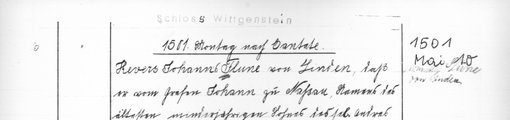 Schloss Wittgenstein
1501. Montag nach Cantate.
1501
Revers Johanns Flune von Linden, daß
Mai 10
er vom Grafen Johann zu Nassau, Namens des
von Linden
ältesten minderjährigen Sohnes des sel. Andres